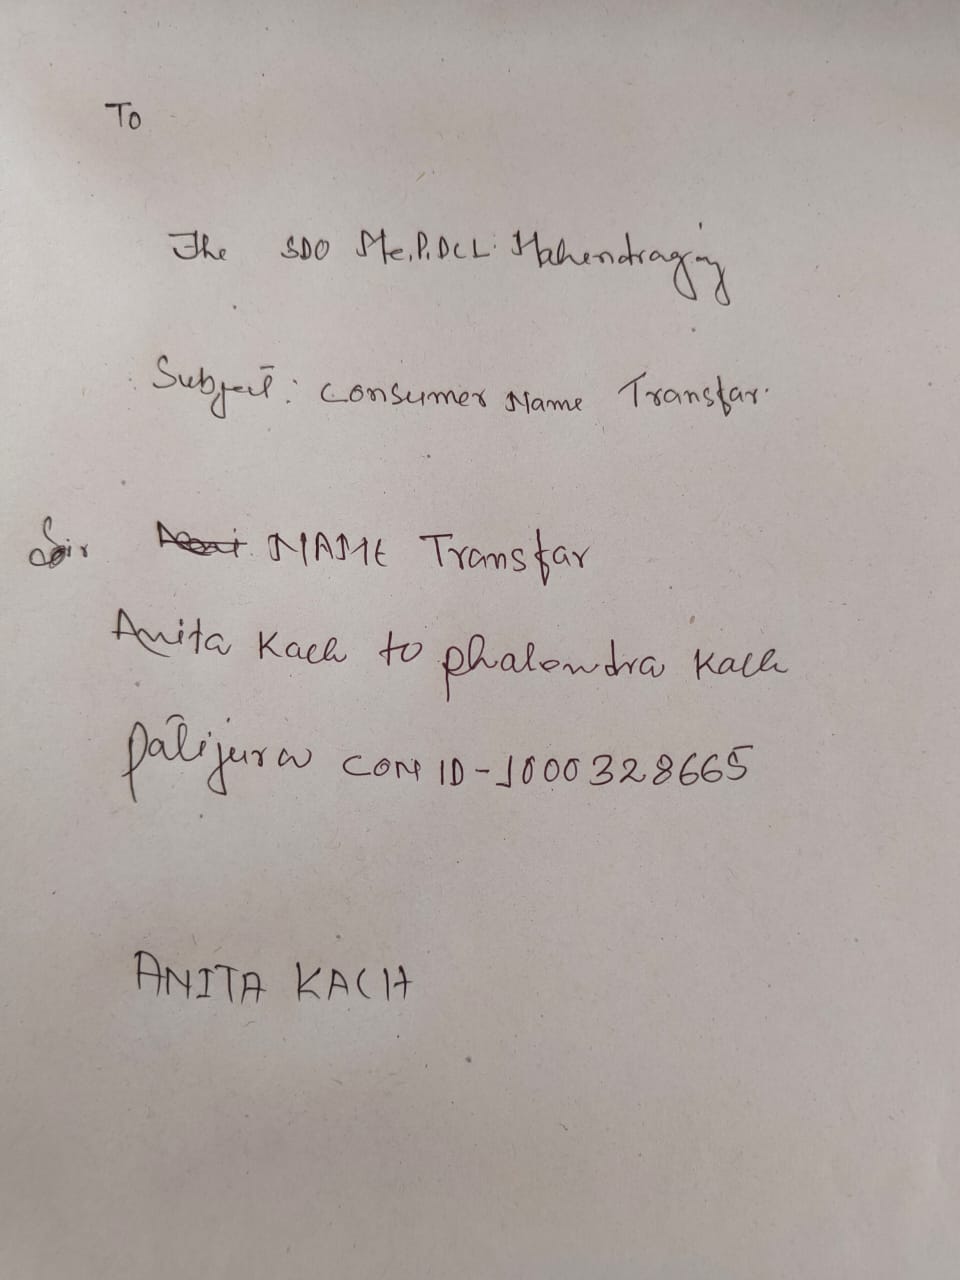 To
The SDO Me.P.DCL. Mahendraganj
Subject: Consumer Name Transfar.
Sir NAME Transfar
Anita Kach to phalendra Kach
Patijura CON ID-1000328665
ANITA KACH